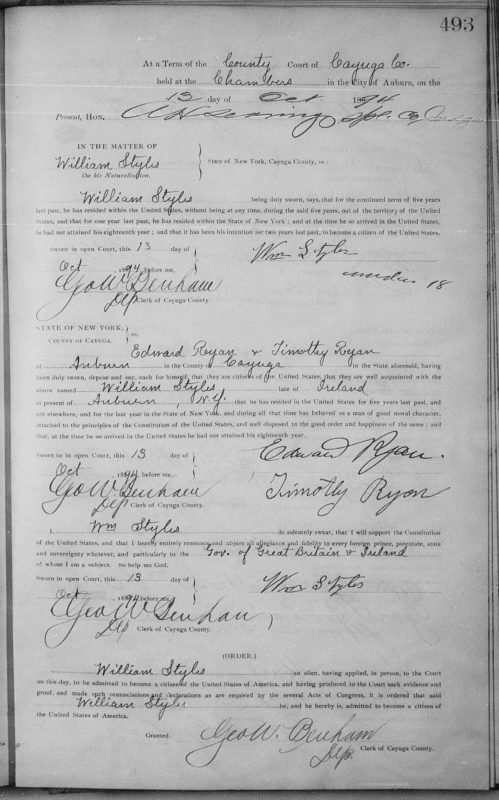 493
At a Term of the County Court of Cayuga Co.
held at the Chambers in the City of Auburn, on the
13 day of Oct 1894
Present, HON.
IN THE MATTER OF
William Styles
On his Naturalization.
State of New York, Cayuga County, ss:
William Styles being duly sworn, says, that for the continued term of five years
last past, he has resided within the United States, without being at any time, during the said five years, out of the territory of the United
States, and that for one year last past, he has resided within the State of New York; and at the time he so arrived in the United States,
he had not attained his eighteenth year; and that it has been his intention for two years last past, to become a citizen of the United States.
Sworn in open Court, this 13 day of
Oct, 1894, before me,
Geo W. Benham
Dep Clerk of Cayuga County.
Wm Styles
under 18
STATE OF NEW YORK,
COUNTY OF CAYUGA. ss.
Edward Ryan & Timothy Ryan
of Auburn in the County of Cayuga in the State aforesaid, having
been duly sworn, depose and say, each for himself, that they are citizens of the United States, that they are well acquainted with the
above named William Styles, late of Ireland
at present of Auburn, N.Y. that he has resided in the United States for five years last past, and
not elsewhere, and for the last year in the State of New York, and during all that time has behaved as a man of good moral character,
attached to the principles of the Constitution of the United States, and well disposed to the good order and happiness of the same; and
that, at the time he so arrived in the United States he had not attained his eighteenth year.
Sworn to in open Court, this 13 day of
Oct, 1894, before me,
Geo W. Benham
Dep Clerk of Cayuga County.
Edward Ryan.
Timothy Ryon
I, Wm Styles do solemnly swear, that I will support the Constitution
of the United States, and that I hereby entirely renounce and abjure all allegiance and fidelity to every foreign prince, potentate, state
and sovereignty whatever, and particularly to the Gov. of Great Britain & Ireland
of whom I am a subject. So help me God.
Sworn in open Court, this 13 day of
Oct, 1894, before me,
Geo W Benham,
Dep Clerk of Cayuga County.
Wm Styles
(ORDER.)
William Styles an alien, having applied, in person, to the Court
on this day, to be admitted to become a citizen of the United States of America, and having produced to the Court such evidence and
proof, and made such renunciations and declarations as are required by the several Acts of Congress, it is ordered that said
William Styles be, and he hereby is, admitted to become a citizen of
the United States of America.
Granted.
Geo W. Benham
Dep. Clerk of Cayuga County.